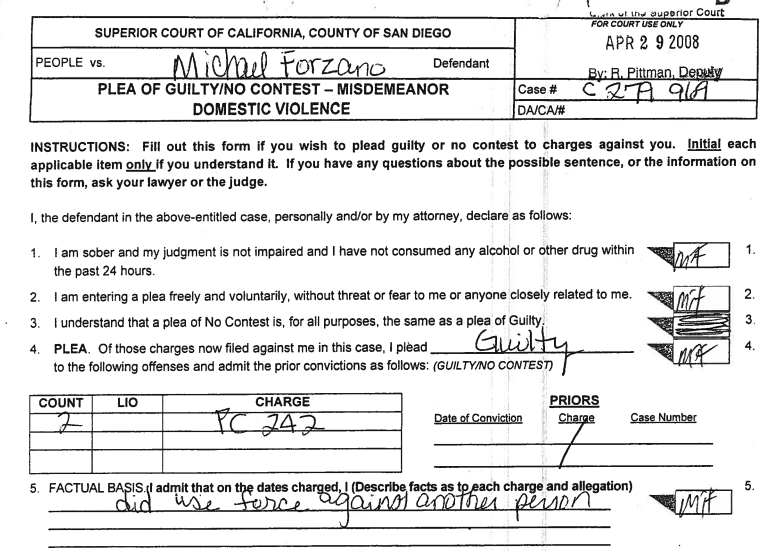 Clerk of the Superior Court
FOR COURT USE ONLY
APR 29 2008
By: R. Pittman, Deputy
SUPERIOR COURT OF CALIFORNIA, COUNTY OF SAN DIEGO
PEOPLE vs. Michael Forzano Defendant
PLEA OF GUILTY/NO CONTEST – MISDEMEANOR
DOMESTIC VIOLENCE
Case #
DA/CA/#
INSTRUCTIONS: Fill out this form if you wish to plead guilty or no contest to charges against you. Initial each
applicable item only if you understand it. If you have any questions about the possible sentence, or the information on
this form, ask your lawyer or the judge.
I, the defendant in the above-entitled case, personally and/or by my attorney, declare as follows:
1. I am sober and my judgment is not impaired and I have not consumed any alcohol or other drug within MF 1.
the past 24 hours.
2. I am entering a plea freely and voluntarily, without threat or fear to me or anyone closely related to me. MF 2.
3. I understand that a plea of No Contest is, for all purposes, the same as a plea of Guilty. 3.
4. PLEA. Of those charges now filed against me in this case, I plead Guilty MF 4.
to the following offenses and admit the prior convictions as follows: (GUILTY/NO CONTEST)
COUNT LIO CHARGE
2 PC 242
PRIORS
Date of Conviction Charge Case Number
5. FACTUAL BASIS. I admit that on the dates charged, I (Describe facts as to each charge and allegation) 5.
did use force against another person MF